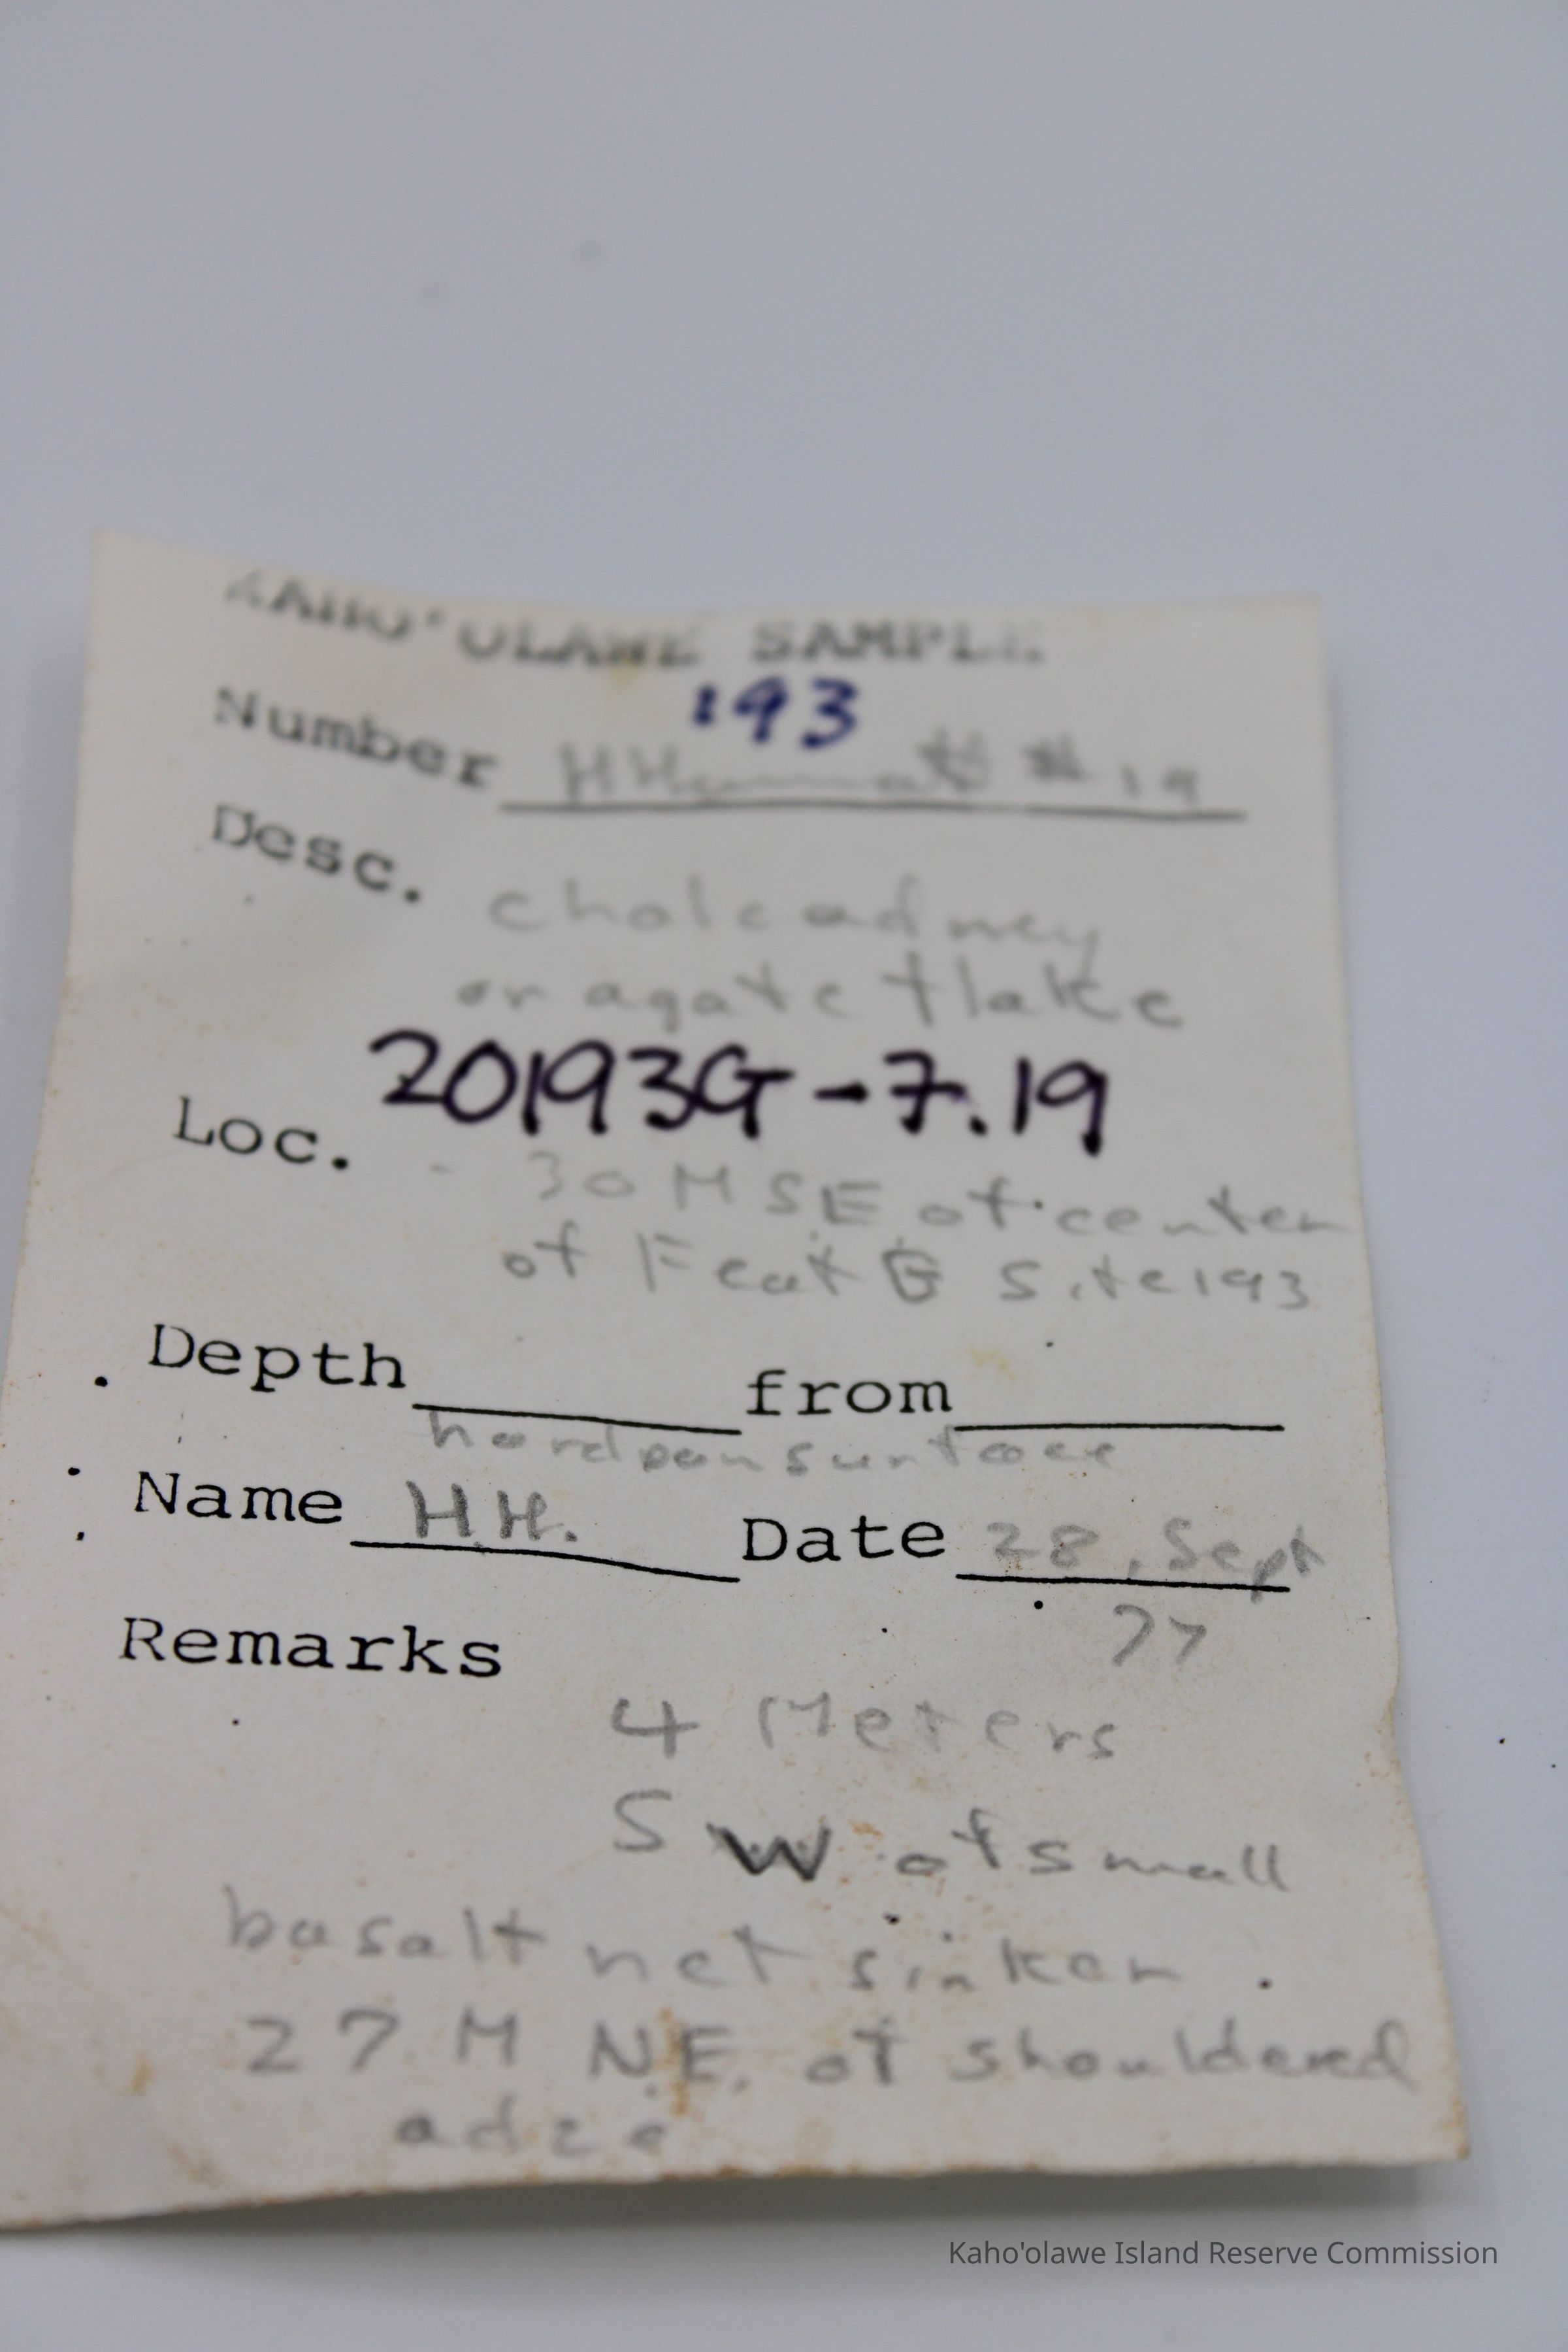 KAHO'OLAWE SAMPLE
193
Number # 19
Desc. chalcadney
or agate flake
20193G-7.19
Loc. 30 M S.E of center
of Feat G Site 193
Depth from
hardpan surface
Name H.H. Date 28, Sept
77
Remarks
4 Meters
SW of small
basalt net sinker.
27 M N.E. of shouldered
adze
Kaho'olawe Island Reserve Commission